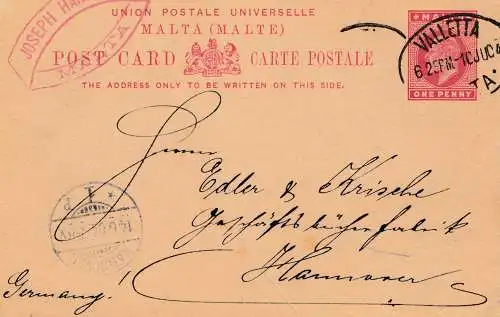 JOSEPH
UNION POSTALE UNIVERSELLE
MALTA (MALTE)
POST CARD CARTE POSTALE
THE ADDRESS ONLY TO BE WRITTEN ON THIS SIDE.
MALTA
ONE PENNY
VALLETTA
Herren
Edler & Krische
Geschäftsbücherfabrik
Hannover
Germany!